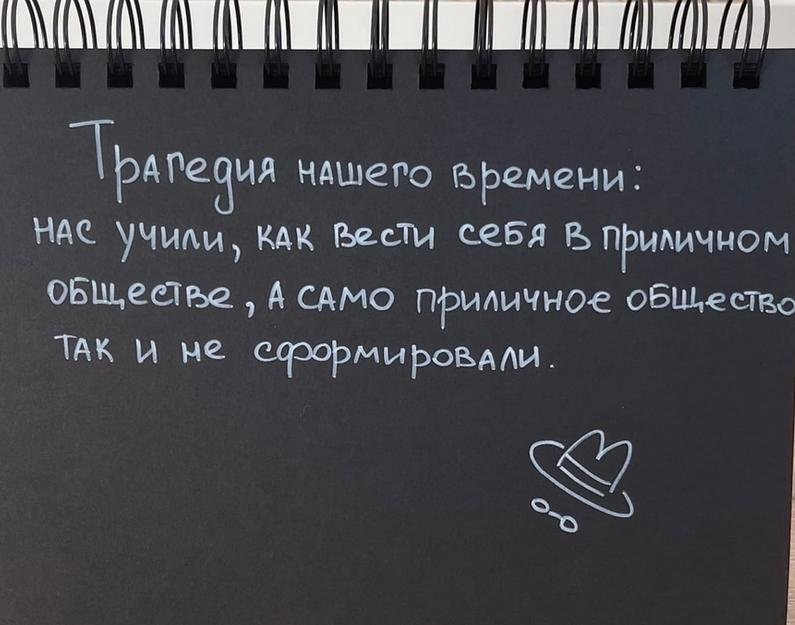 Трагедия нашего времени:
нас учили, как вести себя в приличном
обществе, а само приличное общество
так и не сформировали.